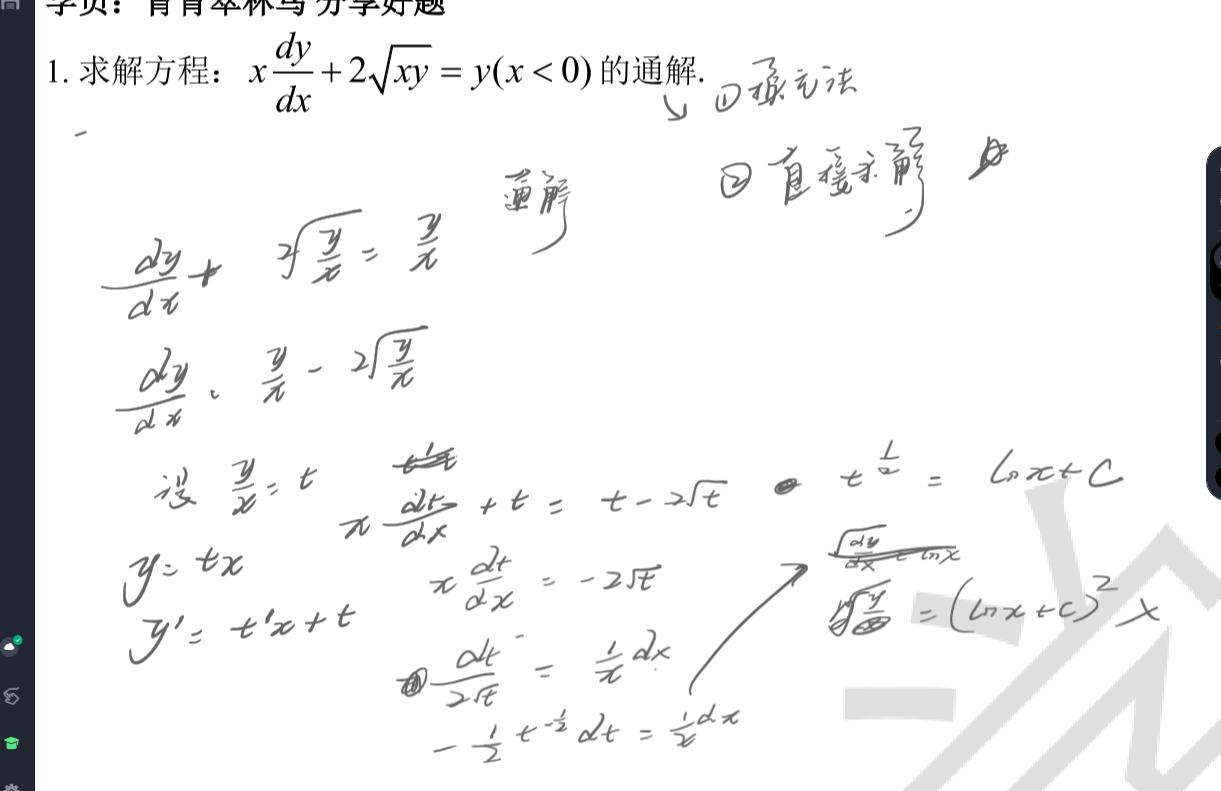 学员：青青翠林鸟 分享好题
1. 求解方程： x dy/dx + 2√(xy) = y(x < 0) 的通解.
↘ ① 换元法
② 直接求解
通解
dy/dx + 2√(y/x) = y/x
dy/dx = y/x - 2√(y/x)
设 y/x = t
y = tx
y' = t'x + t
x dt/dx + t = t - 2√t
x dt/dx = -2√t
- dt/(2√t) = 1/x dx
- 1/2 t^(-1/2) dt = 1/x dx
t^(1/2) = ln x + C
= (ln x + c)² x